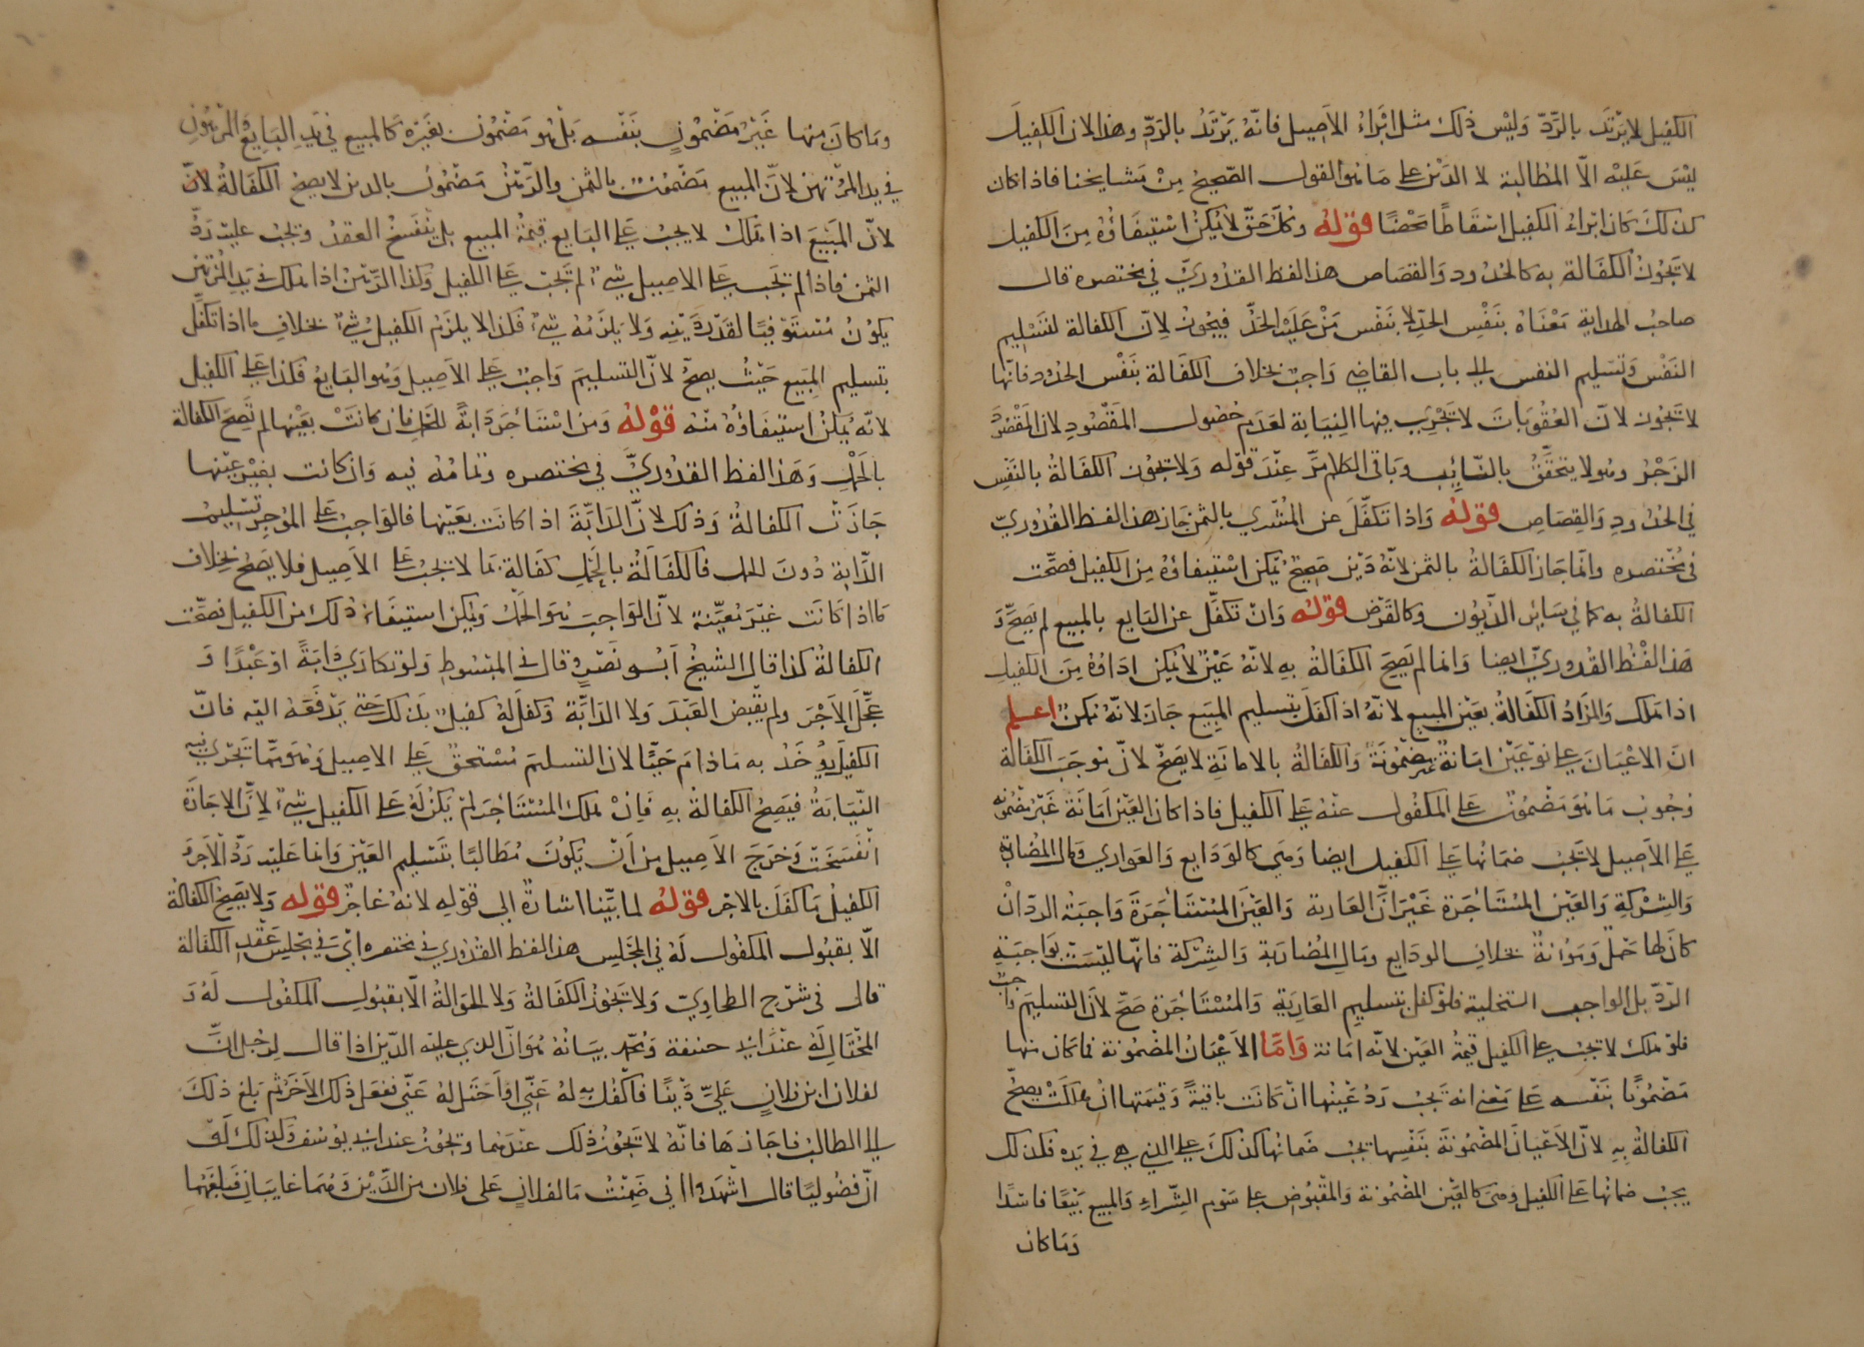 الكفيل لا يرتد بالرَّدِّ وَليْسَ ذلك مثل ابْرَاءِ الاَصِيل فانّهُ يَرْتَدُ بالرَدِّ وهذا لان الكفِيلَ
ليْسَ عَليْه الاّ المطالبة لا الدَيْن على مَا هُو القول الصّحِيحُ مِنْ مَشايخنا فاذا كان
كذلكَ كانَ ابْراءُ الكفيل اسْقاطًا مَحْضًا قوْلهُ وكلّ حَقّ لا يُمْكِنُ اسْتِيفَاؤُهُ مِنَ الكفيل
لا تَجُوزُ الكفَالة به كالحُدُود وَالقصَاص هذا لفظ القدُوريّ في مختصره قال
صاحبُ الهداية مَعْناهُ بنَفْسِ الحدِّ لا بنَفْس مَنْ عَليْه الحدُّ فيجُوزُ لانّ الكفالة لتَسْليم
النَفْس وَتسْليم النفس الى باب القاضِي وَاجبٌ بخلاف الكفَالة بنَفْس الحُدُود فانّها
لا تَجُوز لانّ العُقُوبَاتَ لا تَجْرِي فيها النِيَابة لعَدَمِ حُصُول المَقْصُودِ لان المَقْصُودَ
الزَجْرُ وهُو لا يتحَقّقُ بالنَّائِب وبَاقي الكلام مَرَّ عِنْدَ قوْله وَلا تجُوز الكفَالةُ بالنَفْسِ
في الحُدُودِ وَالقِصَاص قوْلهُ وَاذا تَكفّلَ عن المُشْتري بالثمَن جَازَ هذا لفظ القدُوريّ
في مُخْتصره وانّما جَازَ الكفَالةُ بالثمن لانّهُ دَيْن صَحِيحٌ يُمْكِن اسْتِيفاؤُهُ مِن الكفيل فصَحّت
الكفالةُ به كما في سَايِر الدّيُون وكالقَرْض قوْلهُ وَانْ تكفّل عن البَايع بالمبيع لم يَصِحَّ وَ
هَذا لفْظ القدُوريّ ايضا وَانما لم تَصِحّ الكفَالةُ بهِ لانّهُ عَيْنٌ لا يُمْكِن ادَاؤُهُ مِنَ الكفيل
اذا هَلك وَالمرَادُ الكفَالةُ بعَيْن المبيع لانّهُ اذا كفَلَ بتسليم المبِيَع جَاز لانّهُ مُمْكنٌ اعلم
انَ الاعْيَانَ على نوْعَيْن امَانةٌ غير مَضْمُونَةٍ وَالكفَالةُ بالامَانَةِ لا يَصحّ لانّ مُوجَبَ الكفَالة
وُجُوبُ مَا هُوَ مَضْمُون على المكفُول عنْهُ على الكفيل فاذا كان العَيْن اَمَانَة غَيْر مَضْمُونه
على الاَصِيل لا تَجِبُ ضمَانُها على الكفيل ايضا وَهي كالوَدَايع وَالعَوارِي وَمال المُضَاربة
وَالشِرْكةِ وَالعَيْن المسْتاجَرة غَيْرَ انَّ العَارية وَالعَيْنَ المُسْتاجَرَةَ وَاجبَةُ الردِّ انْ
كانَ لها حَمْلٌ وَمَوُنةٌ بخلاف الودَايع ومَال المُضَاربَةِ وَالشِرْكة فانّها ليْسَتْ بوَاجبَةِ
الرَّدّ بل الواجب التخلية فلوْ كفل بتسليم العَارِيَةِ وَالمُسْتاجَرَة صَحَّ لاَنّ التسْليمَ واجب
فلوْ هلك لا تجبُ على الكفيل قيمَةُ العَيْن لانّه امَانة وَامّا الاَعْيَانُ المَضْمُونة فما كان منها
مَضْمُونًا بنَفْسه على مَعْنى انه تَجِبُ رَدُ عَيْنها انْ كانَت باقيةً وَقيمَتها انْ هلكَتْ يصِحُّ
الكفالةُ بِهِ لانّ الاَعْيَانَ المَضْمُونَةَ بنَفْسِها تجبُ ضَمانُها كذلكَ على الذي هي في يَدِه فكذلك
يجبُ ضمانُها على الكفيل وَهي كالعَيْن المَضْمُونة وَالمقْبُوض على سَوْمِ الشِّراءِ وَالمبِيع بَيْعًا فاسِدًا
وَمَا كان
ومَا كانَ منها غَيْرَ مَضْمُونٍ بنَفْسه بَلْ هُو مَضْمُون بغَيْره كالمَبيع في يَدِ البَايع وَالمَرْهُونِ
في يدِ المُرْتهِن لانَّ المَبيع مَضْمُون بالثمَنِ وَالرَهْنُ مَضْمُون بالدين لا يصِحُ الكفَالةُ لانّ
لانّ المَبيَعَ اذا هَلك لا يجبُ على البَايع قيمةُ المبيع بل يَنْفَسخُ العقدُ وتجبُ عليه رَدُّ
الثمَن فاذا لم تَجب على الاصِيل شيْءٌ لم تَجِبْ على الكفيل وَكذا الرّهْنُ اذا هلك في يَدِ المُرْتَهن
يكوُنُ مُسْتوْفيًا لقَدْر دَيْنِه وَلا يَلزَمُهُ شيْءٌ فكذا لا يلزَمُ الكفيلَ شيْءٌ بخلافِ ما اذا تكفّلَ
بتسليمِ المبِيَع حَيْثُ يصِحُّ لانّ التَسليمَ وَاجبٌ على الاَصِيل وَهُو البَايعُ فكذا على الكفيل
لانّهُ يُمْكِنُ اسْتِيفَاؤُهُ منْهُ قوْلهُ وَمَن اسْتَاجَرَ دَابةً للحَمْل فان كانَتْ بعَيْنِها لم تَصِحَ الكفَالة
بالحَمْلِ وَهَذا لفظ القدُوريّ في مختصره وتمَامُهُ فيه وَان كانت بغيْرِ عَيْنها
جَازَتْ الكفالةُ وَذلك لانّ الدَابّةَ اذا كانَت بعَيْنها فالوَاجبُ على المُوجِر تَسْليم
الدّابةِ دُونَ الحمل فالكفَالَةُ بالحَمْلِ كفَالة بما لا تجبُ على الاَصِيل فلا يَصحُ بخلاف
مَا اذا كَانَت غيْرَ مُعَيَّنة لانّ الوَاجبَ هُوَ الحَمْلُ وَيُمْكِنُ استيفَاءُ ذلك من الكفيل فصَحّت
الكفالةُ كذا قال الشيْخُ اَبُو نَصْرٍ قال في المبْسُوطِ وَلوْ تكارَى دَابَةً اوْ عَبْدًا وَ
عَجّلَ الاَجْرَ ولم يَقْبِض العَبْدَ وَلا الدَابّة وَكفَل لهُ كفِيلٌ بذلك حَتى يَدْفَعَهُ اليْه فانّ
الكفيلَ يُؤخَذُ به مَا دامَ حَيًّا لان التسليمَ مُسْتحقٌ على الاصِيل وَهُوَ ممّا تَجْرِي فيه
النِّيَابَةُ فيَصِحُ الكفالةُ بهِ فَاِنْ هلك المُسْتاجَر لمْ يَكنْ لَهُ على الكفيل شيْءٌ لانَّ الاِجَارَةَ
انْفَسَخَتْ وَخَرَجَ الاَصِيل منْ اَنْ يَكونَ مُطَالبًا بتَسْليمِ العَيْن وَانما عَليْه رَدُّ الاَجْرِ وَ
الكفِيلُ مَا كفَلَ بالاجْر قوْلهُ لما بيّنّا اشارةٌ الى قوْلِه لانه عَاجزٌ قوْله وَلا يَصِحُ الكفَالةُ
الاّ بقبُول المكفُول لَهُ في المَجْلِس هذا لفظ القدُوري في مختصره ايْ في مَجْلِسِ عَقْدِ الكفَالة
قال في شَرْح الطحَاوي وَلا تَجُوزُ الكفَالةُ وَلا الحَوالةُ الاّ بقبُول المكفُول لَهُ وَ
المُحْتال لَهُ عنْدَ ابي حنيفة وَمُحَمّد بيَانهُ هُوَ انّ الذي عليْه الدّيْن اذا قال لرَجُل انَّ
لفلان ابن فلانٍ عَليَّ دَيْنًا فاكفُل بهِ لهُ عَنّي اوْ اَحْتَل لهُ عَنّي ففعَل ذلك الاَخَر ثمَّ بَلغَ ذلكَ
الى الطالب فاجَازهَا فانّهُ لا تَجُوزُ ذلك عنْدَهما وتجُوزُ عند ابي يوسُف وَكذلك لوْ
انّ فضُوليًا قال اشْهَدُوا اني ضَمِنْتُ مَا لفلانٍ عَلى فلان من الدّيْن وَهُمَا غايبَان فبلغَهُما